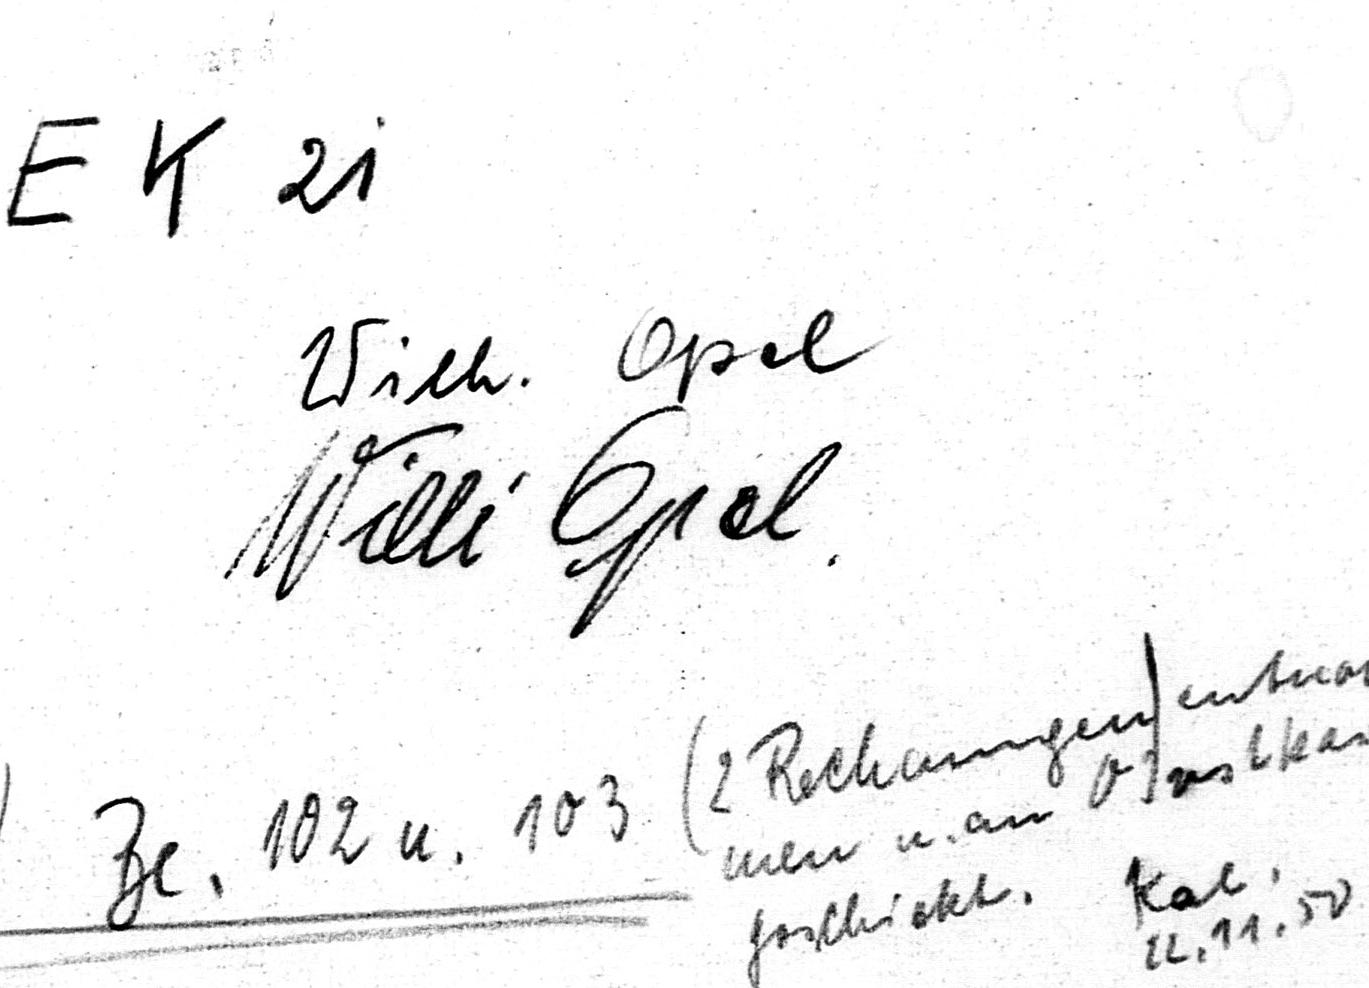 EK 21
Wilh. Opel
Willi Opel.
Bl. 102 u. 103 (2 Rechnungen) entnom
men u. an
geschickt.
22.11.50